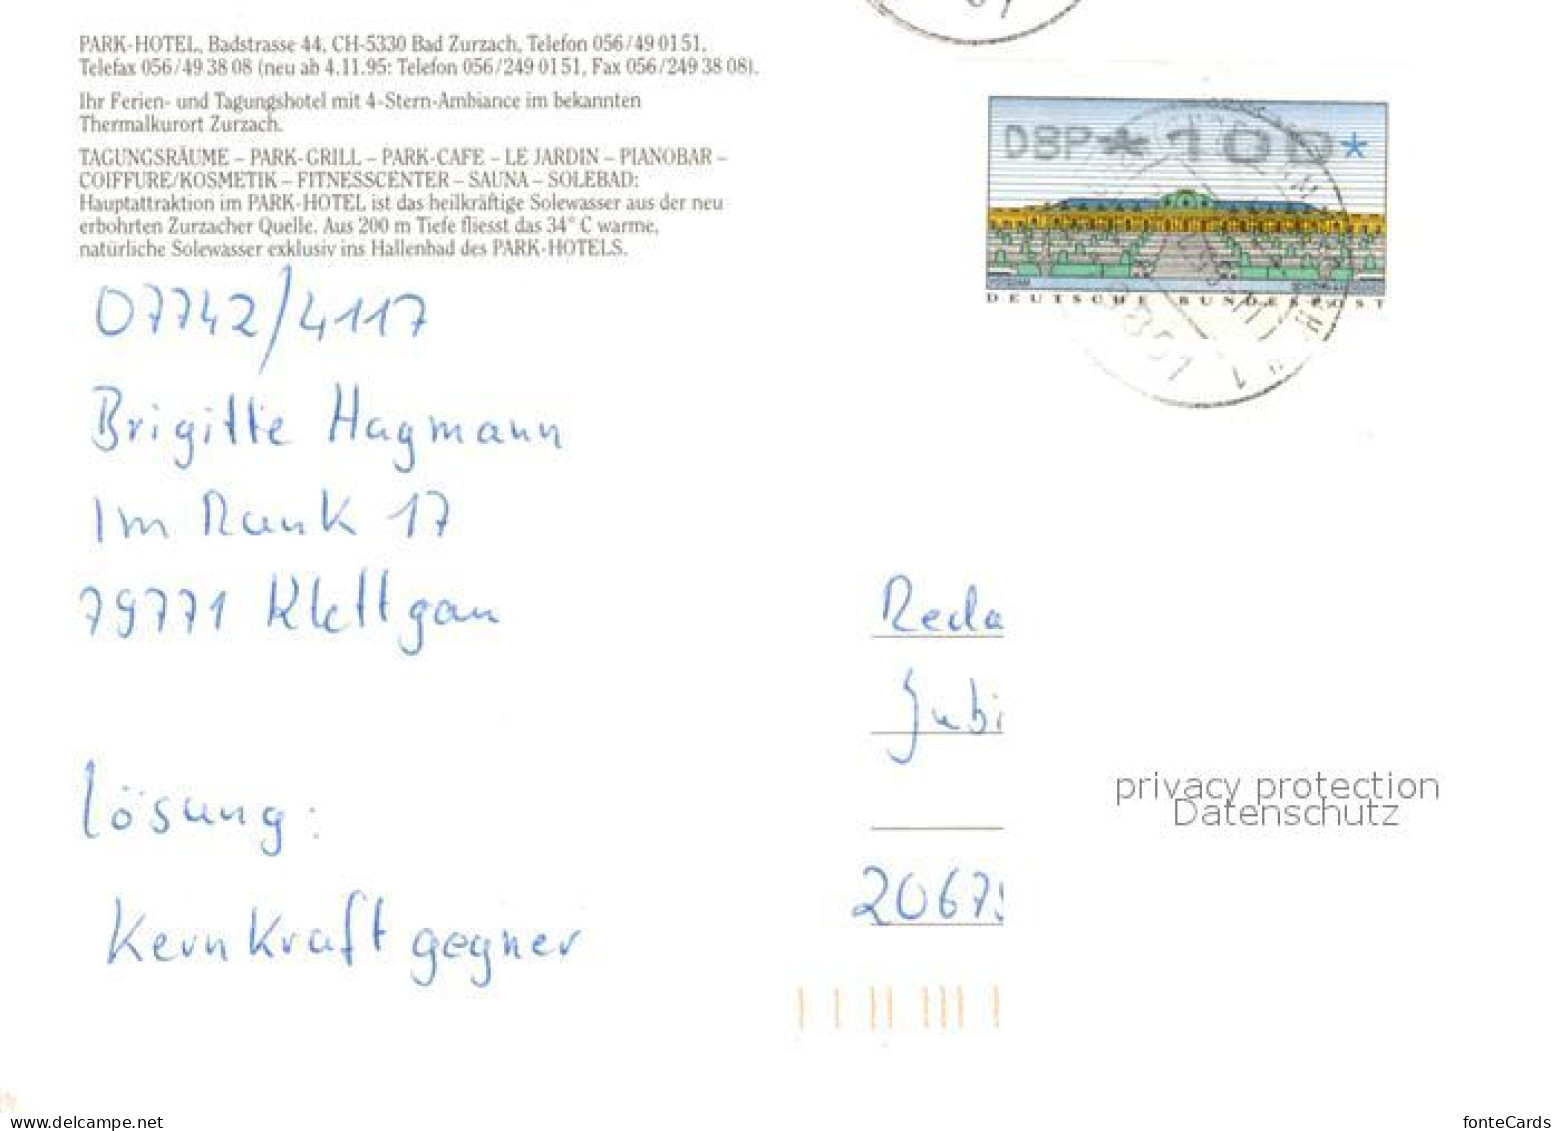 PARK-HOTEL, Badstrasse 44, CH-5330 Bad Zurzach, Telefon 056/49 01 51,
Telefax 056/49 38 08 (neu ab 4.11.95: Telefon 056/249 01 51, Fax 056/249 38 08).
Ihr Ferien- und Tagungshotel mit 4-Stern-Ambiance im bekannten
Thermalkurort Zurzach.
TAGUNGSRÄUME – PARK-GRILL – PARK-CAFE – LE JARDIN – PIANOBAR –
COIFFURE/KOSMETIK – FITNESSCENTER – SAUNA – SOLEBAD:
Hauptattraktion im PARK-HOTEL ist das heilkräftige Solewasser aus der neu
erbohrten Zurzacher Quelle. Aus 200 m Tiefe fliesst das 34° C warme,
natürliche Solewasser exklusiv ins Hallenbad des PARK-HOTELS.
07742/4117
Brigitte Hagmann
Im Rank 17
79771 Klettgau
Lösung:
Kernkraftgegner
DBP*100*
DEUTSCHE BUNDESPOST
Reda
Jubi
2067
privacy protection
Datenschutz
www.delcampe.net
fonteCards